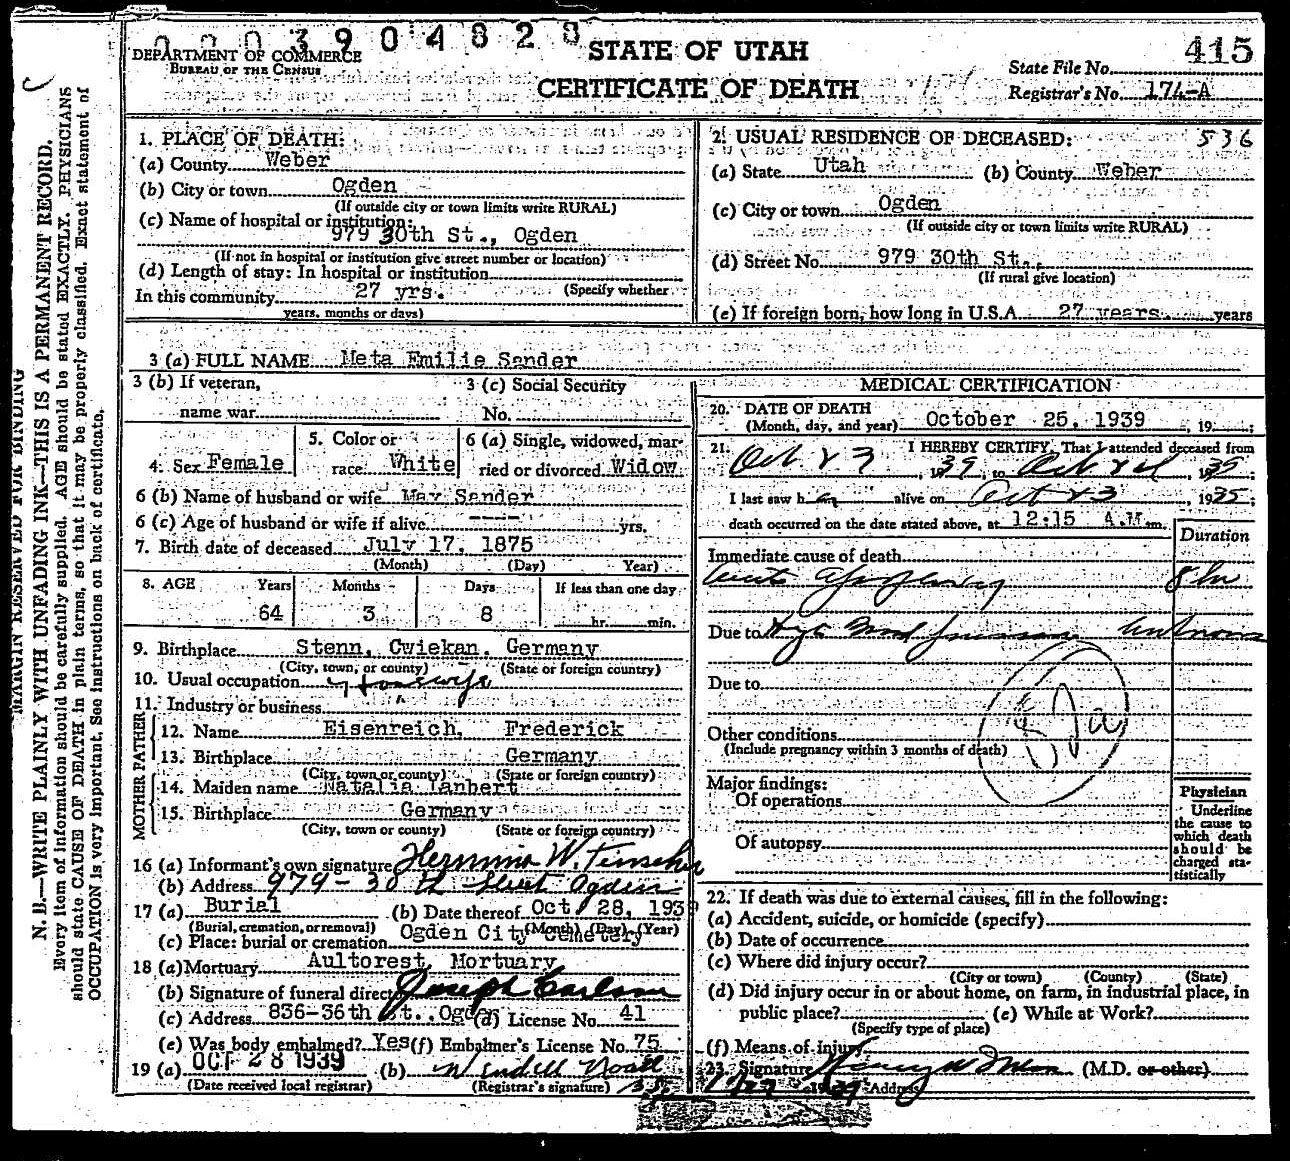 0003904828
DEPARTMENT OF COMMERCE
BUREAU OF THE CENSUS
STATE OF UTAH
CERTIFICATE OF DEATH
415
State File No.
Registrar's No. 174-A
MARGIN RESERVED FOR BINDING
N. B.—WRITE PLAINLY WITH UNFADING INK—THIS IS A PERMANENT RECORD.
Every item of information should be carefully supplied. AGE should be stated EXACTLY. PHYSICIANS
should state CAUSE OF DEATH in plain terms, so that it may be properly classified. Exact statement of
OCCUPATION is very important. See instructions on back of certificate.
1. PLACE OF DEATH:
(a) County Weber
(b) City or town Ogden
(If outside city or town limits write RURAL)
(c) Name of hospital or institution:
979 30th St., Ogden
(If not in hospital or institution give street number or location)
(d) Length of stay: In hospital or institution
(Specify whether
In this community 27 yrs.
years, months or days)
2. USUAL RESIDENCE OF DECEASED: 536
(a) State Utah (b) County Weber
(c) City or town Ogden
(If outside city or town limits write RURAL)
(d) Street No. 979 30th St.,
(If rural give location)
(e) If foreign born, how long in U.S.A. 27 years years
3 (a) FULL NAME Meta Emilie Sander
3 (b) If veteran,
name war
3 (c) Social Security
No.
4. Sex Female
5. Color or
race White
6 (a) Single, widowed, mar-
ried or divorced Widow
6 (b) Name of husband or wife Max Sander
6 (c) Age of husband or wife if alive ---- yrs.
7. Birth date of deceased July 17, 1875
(Month) (Day) Year)
8. AGE Years Months Days If less than one day
64 3 8 hr. min.
9. Birthplace Stenn, Cwiekan, Germany
(City, town, or county) (State or foreign country)
10. Usual occupation Housewife
11. Industry or business "
FATHER
12. Name Eisenreich, Frederick
13. Birthplace Germany
(City, town or county) (State or foreign country)
MOTHER
14. Maiden name Natalia Tanbert
15. Birthplace Germany
(City, town or county) (State or foreign country)
16 (a) Informant's own signature W.
(b) Address 979 - 30 th Street Ogden
17 (a) Burial (b) Date thereof Oct 28, 1939
(Burial, cremation, or removal) (Month) (Day) (Year)
(c) Place: burial or cremation Ogden City Cemetery
18 (a) Mortuary Aultorest Mortuary
(b) Signature of funeral director Joseph Carlson
(c) Address 836-36th St., Ogden (d) License No. 41
(e) Was body embalmed? Yes (f) Embalmer's License No. 75
19 (a) OCT 28 1939 (b) Wendell Noall
(Date received local registrar) (Registrar's signature)
MEDICAL CERTIFICATION
20. DATE OF DEATH
(Month, day, and year) October 25, 1939, 19 ;
21. I HEREBY CERTIFY, That I attended deceased from
Oct 23, 19 39, to Oct 24, 19 39;
I last saw her alive on Oct 23, 19 39;
death occurred on the date stated above, at 12:15 A.M. m.
Duration
Immediate cause of death
8 hr
Due to Unknown
Due to
Other conditions
(Include pregnancy within 3 months of death)
Major findings:
Of operations
Of autopsy
Physician
Underline
the cause to
which death
should be
charged sta-
tistically
22. If death was due to external causes, fill in the following:
(a) Accident, suicide, or homicide (specify)
(b) Date of occurrence
(c) Where did injury occur?
(City or town) (County) (State)
(d) Did injury occur in or about home, on farm, in industrial place, in
public place? (e) While at Work?
(Specify type of place)
(f) Means of injury
23. Signature (M.D. or other)
Address